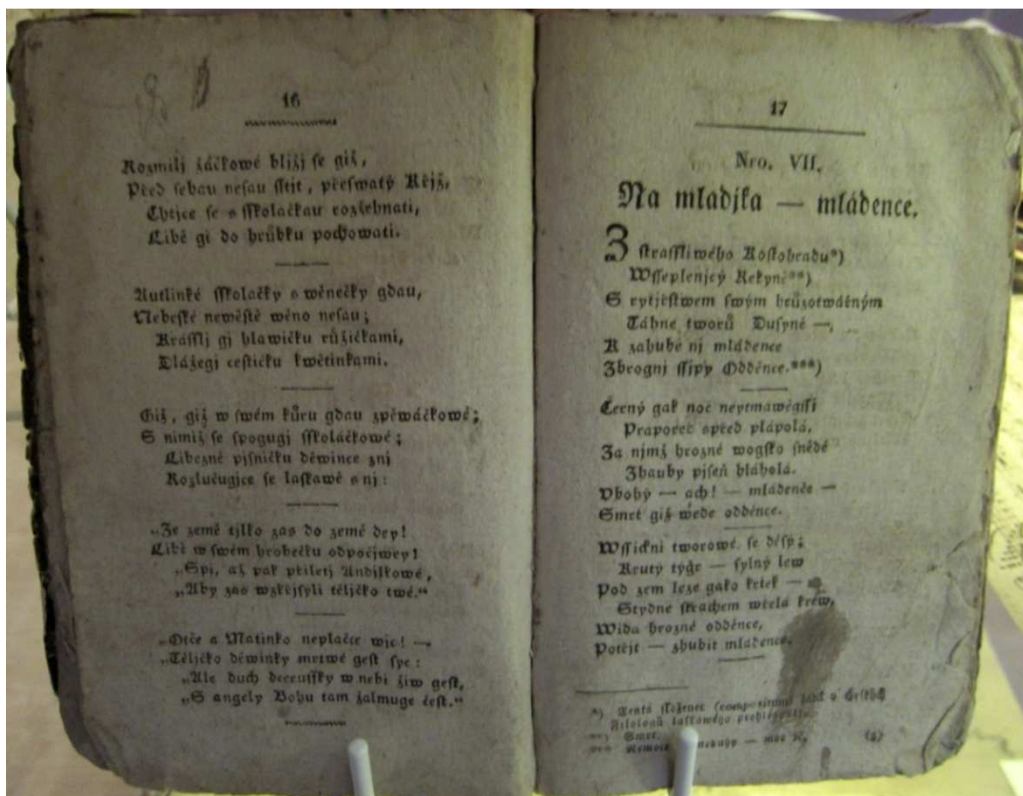 16
Rozmilj žáčkowé bljžj se giž,
Před sebau nesau sstjt, přeswatý Křjž,
Chtjce se s sskolačkau rozžehnati,
Libě gi do hrůbku pochowati.
Autlinké sskolačky s wěnečky gdau,
Nebeské newěstě wěno nesau;
Krásslj gj hlawičku růžičkami,
Dlážegj cestičku kwětinkami.
Giž, giž w swém kůru gdau zpěwáčkowé;
S nimiž se spogugj sskoláčkowé;
Libezné pjsničku děwince znj
Rozlučugjce se laskawě s nj:
„Ze země tjlko zas do země dey!
Libě w swém hrobečku odpočjwey!
„Spi, až pak přiletj Andjlkowé,
„Aby zas wzkřjsyli těljčko twé.“
„Otče a Matinko neplačte wjc! —
„Těljčko děwinky mrtwé gest syc:
„Ale duch dcerussky w nebi žiw gest,
„S angely Bohu tam žalmuge čest.“
17
Nro. VII.
Na mladjka — mládence.
Z strassliwého Kostohradu*)
Wsseplenjcý Rekyně**)
S rytjřstwem swým hrůzotwárným
Táhne tworů Dusyně —,
K záhubě nj mládence
Zbrognj ssipy Odděnce.***)
Černý gak noc neytmawěgssj
Praporec wpřed plápolá,
Za njmž hrozné wogsko snědé
Zhauby pjseň hláholá.
Vbohý — ach! — mládenče —
Smrt giž wede odděnce.
Wssickni tworowé se děsý;
Krutý týgr — sylný lew
Pod zem leze gako krtek —
Stydne strachem wřelá krew,
Wida hrozné odděnce,
Potějt — zhubit mládence.
*) Tento složenec (compositum)
Filologů laskawého
**) Smrt.
***) Nemoce